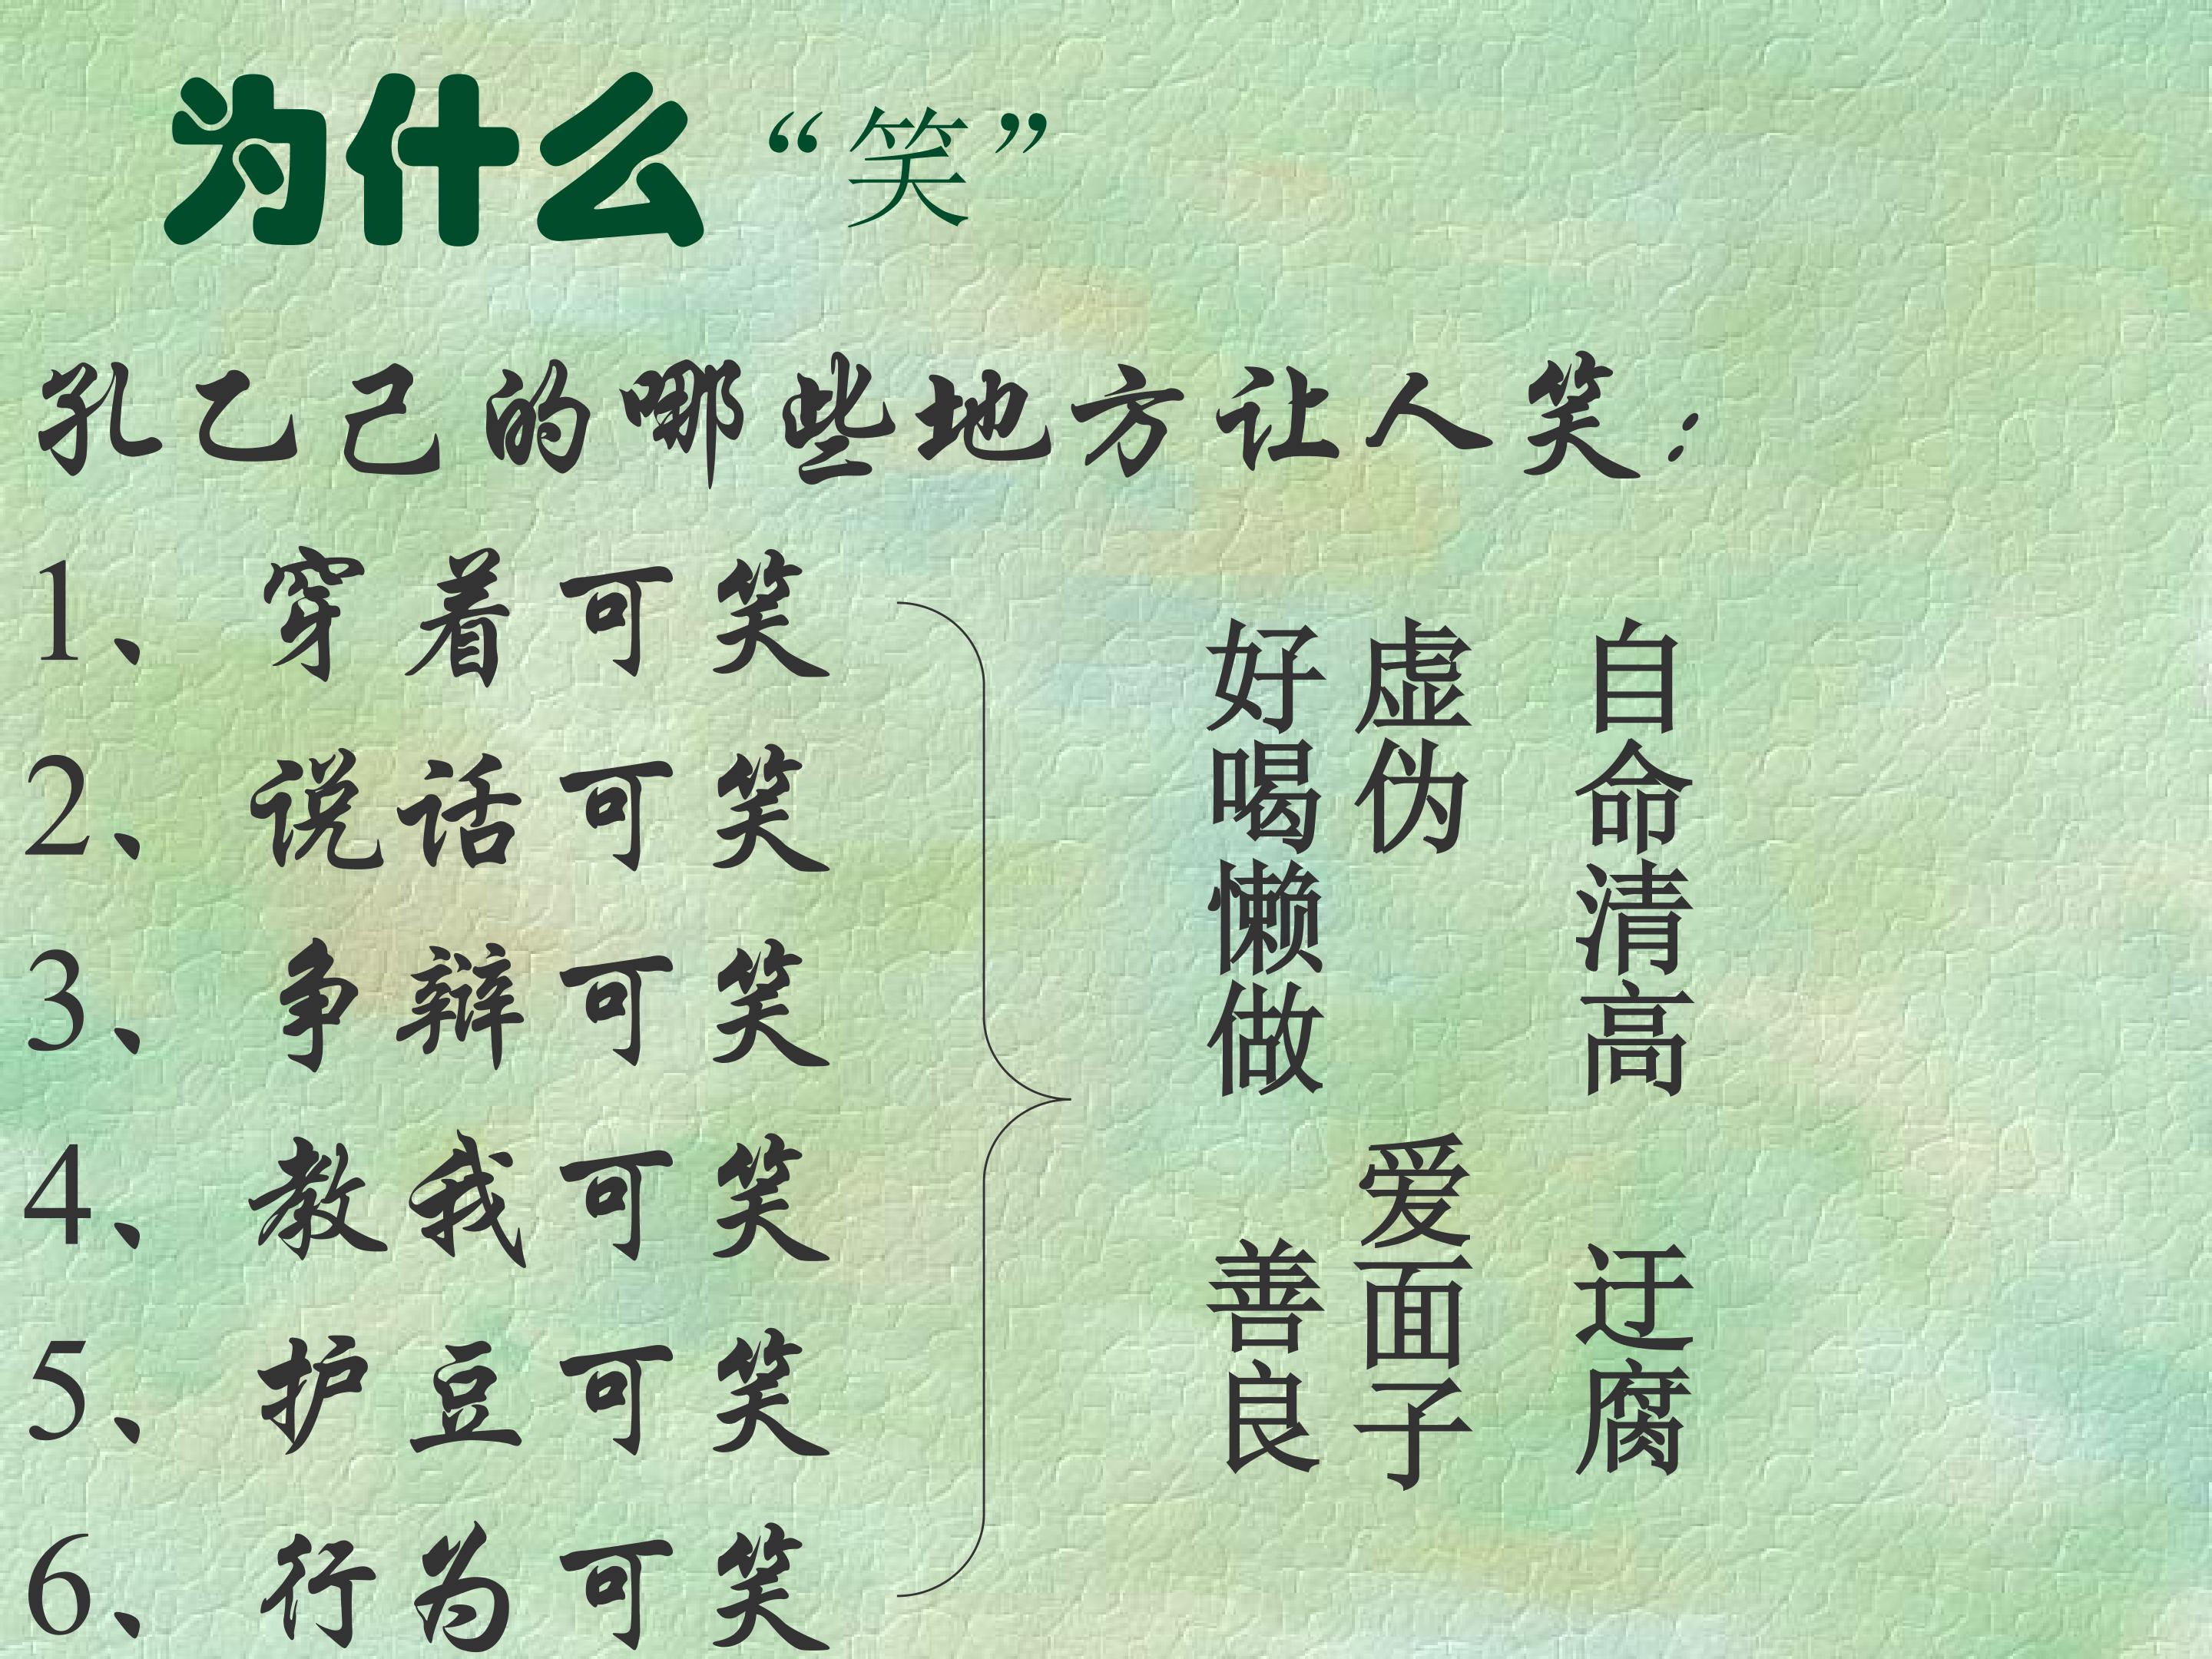 为什么“笑”
孔乙己的哪些地方让人笑：
1、穿着可笑
2、说话可笑
3、争辩可笑
4、教我可笑
5、护豆可笑
6、行为可笑
好喝懒做
虚伪
自命清高
善良
爱面子
迂腐